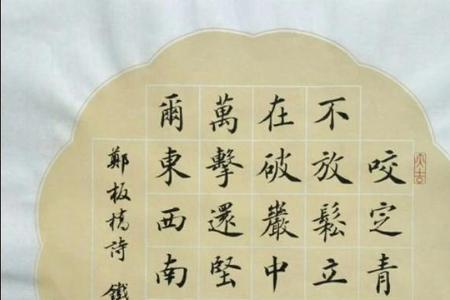 咬定青
不放鬆立
在破巖中
萬擊還堅
爾東西南
鄭板橋詩 鐵